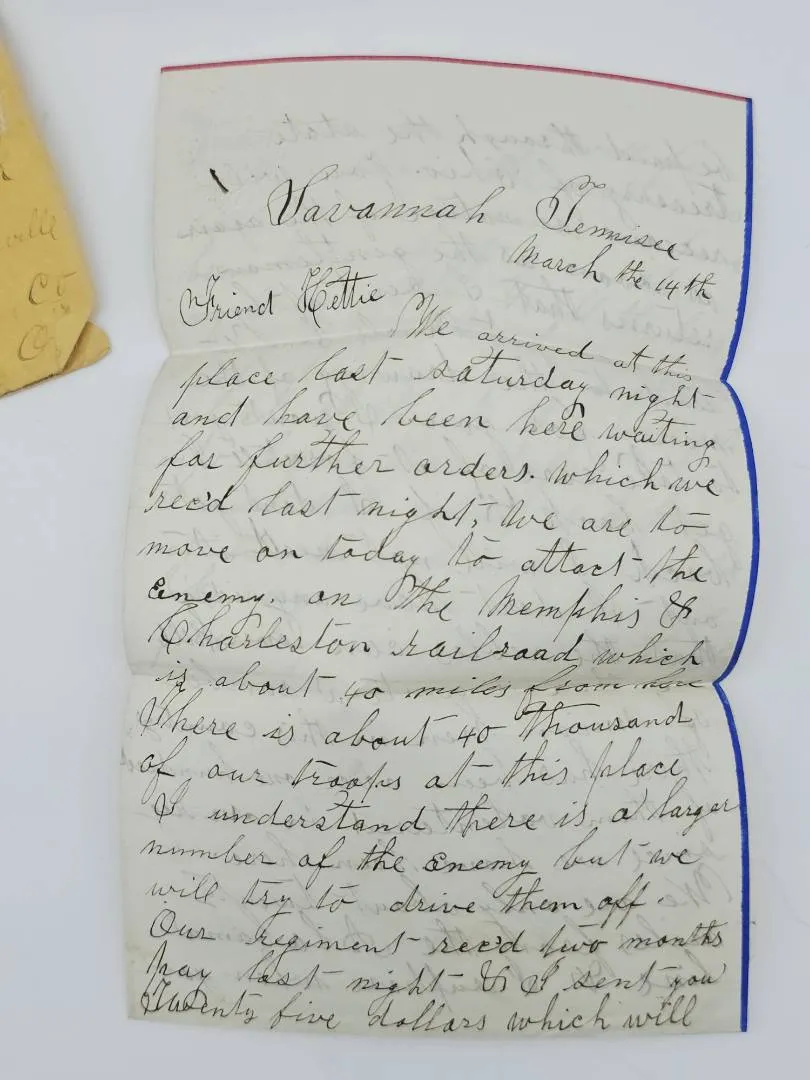 ville
Co
O
Savannah Tennisee
March the 14th
Friend Hettie
We arrived at this
place last saturday night
and have been here waiting
for further orders. which we
rec'd last night, We are to
move on today to attact the
Enemy. on the Memphis &
Charleston railroad which
is about 40 miles from here
There is about 40 thousand
of our troops at this place
I understand there is a larger
number of the Enemy but we
will try to drive them off.
Our regiment rec'd two months
pay last night & I sent you
Twenty five dollars which will